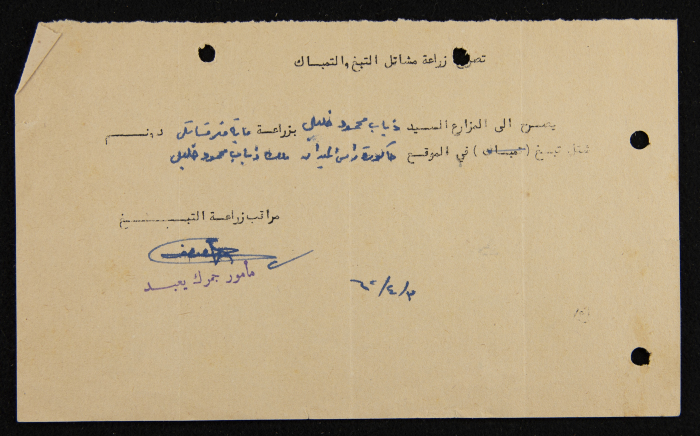 تصريح زراعة مشاتل التبغ والتمباك
يصرح الى المزارع السيد ذياب محمود خليل بزراعة ماية متر مشاتل دونم
تبغ (تمباك) في الموقع حاكورة راس الميدان ملك ذياب محمود خليل
مراتب زراعة التبغ
مأمور جمرك يعبد
٣/٤/٦٢